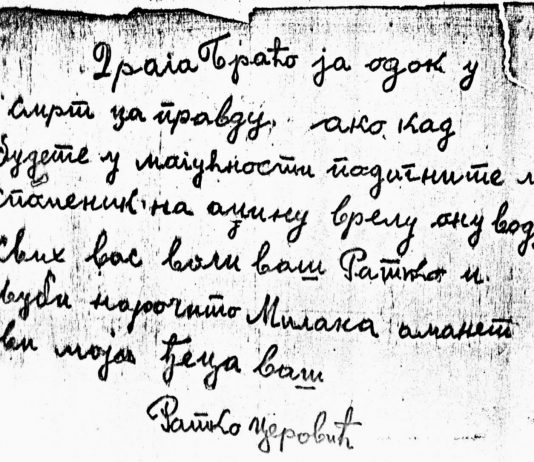 Драга Браћо ја одок у
смрт за правду. ако кад
будете у могућности подигните м
споменик на оџину врелу ону вод
свих вас воли ваш Ратко и
љуби нарочито Милана аманет
ви моја ђеца ваш
Ратко Церовић